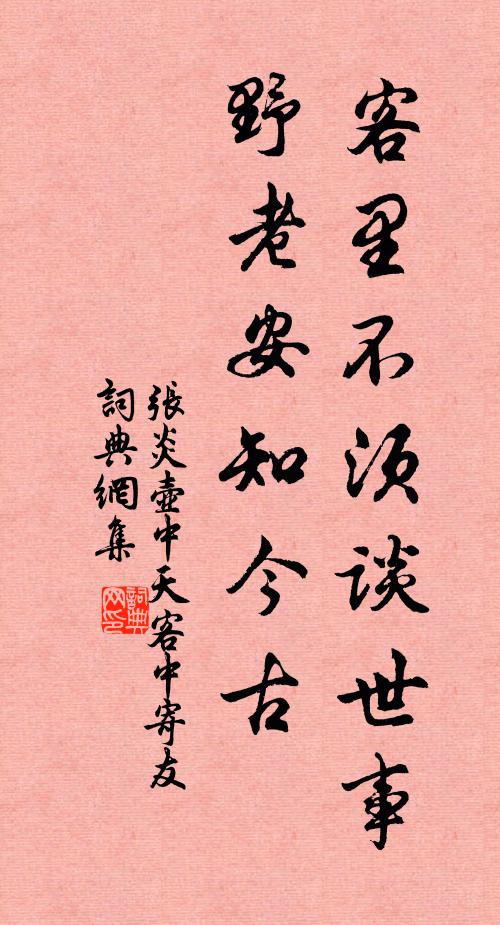 客里不須談世事
野老安知今古
張炎壺中天客中寄友
詞典網集
詞典网印